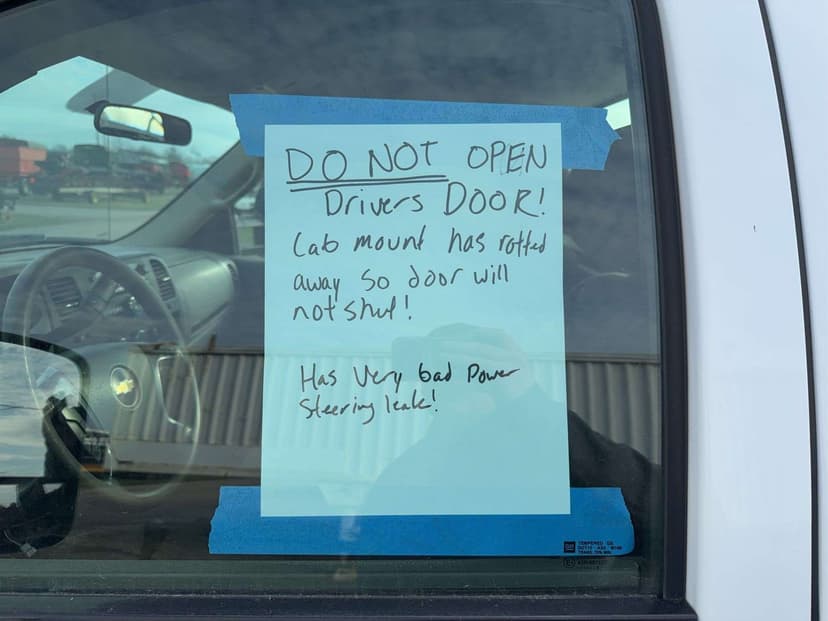 DO NOT OPEN
Drivers DOOR!
Cab mount has rotted
away so door will
not shut!
Has Very bad Power
Steering leak!
TEMPERED